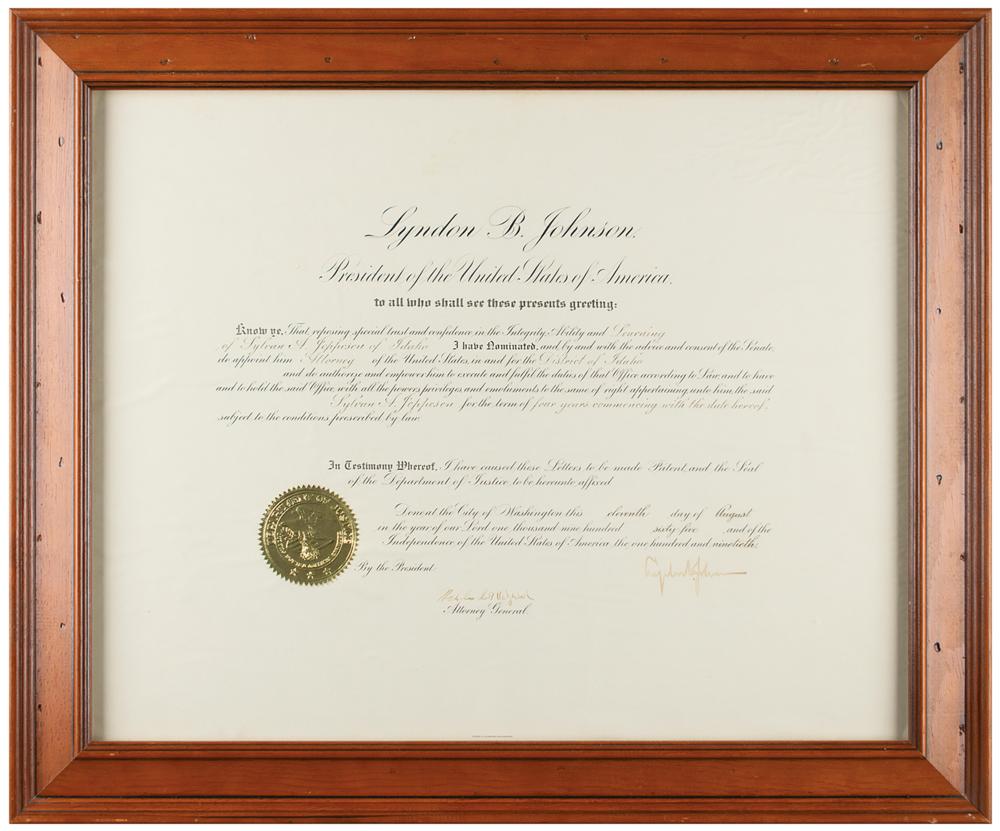 Lyndon B. Johnson,
President of the United States of America,
to all who shall see these presents greeting:
Know ye, That reposing special trust and confidence in the Integrity Ability and Learning
of Sylvan A. Jeppesen of Idaho I have Nominated, and, by and with the advice and consent of the Senate,
do appoint him Attorney of the United States, in and for the District of Idaho
and do authorize and empower him to execute and fulfil the duties of that Office according to Law, and to have
and to hold the said Office, with all the powers, privileges, and emoluments to the same of right appertaining unto him, the said
Sylvan A. Jeppesen for the term of four years commencing with the date hereof,
subject to the conditions prescribed by law.
In Testimony Whereof, I have caused these Letters to be made Patent and the Seal
of the Department of Justice to be hereunto affixed
Done at the City of Washington this eleventh day of August
in the year of our Lord one thousand nine hundred sixty five and of the
Independence of the United States of America the one hundred and ninetieth.
By the President:
Attorney General.